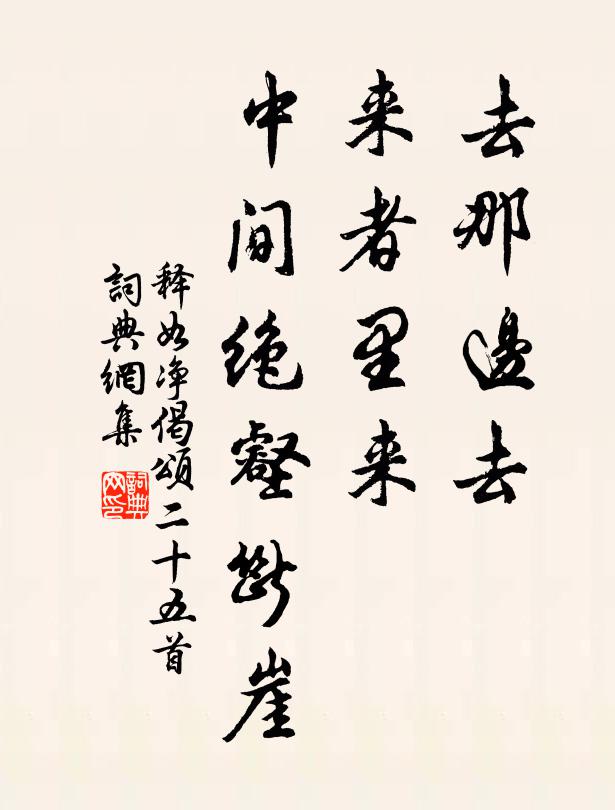 去那邊去
来者里来
中间绝壑斷崖
释如净偈頌二十五首
詞典網集
詞典网印